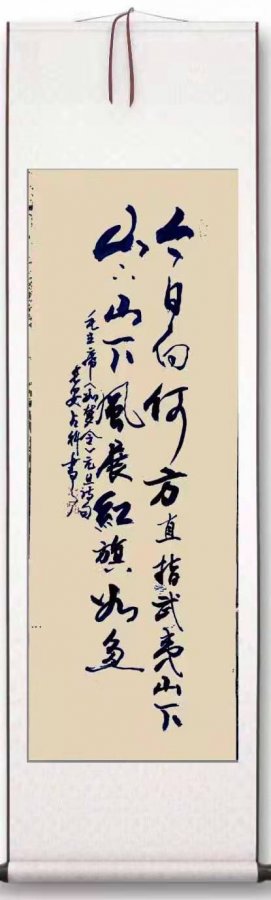 今日向何方直指武夷山下
山下山下風展紅旗如画
毛主席《如梦令》元旦诗句
安占科書